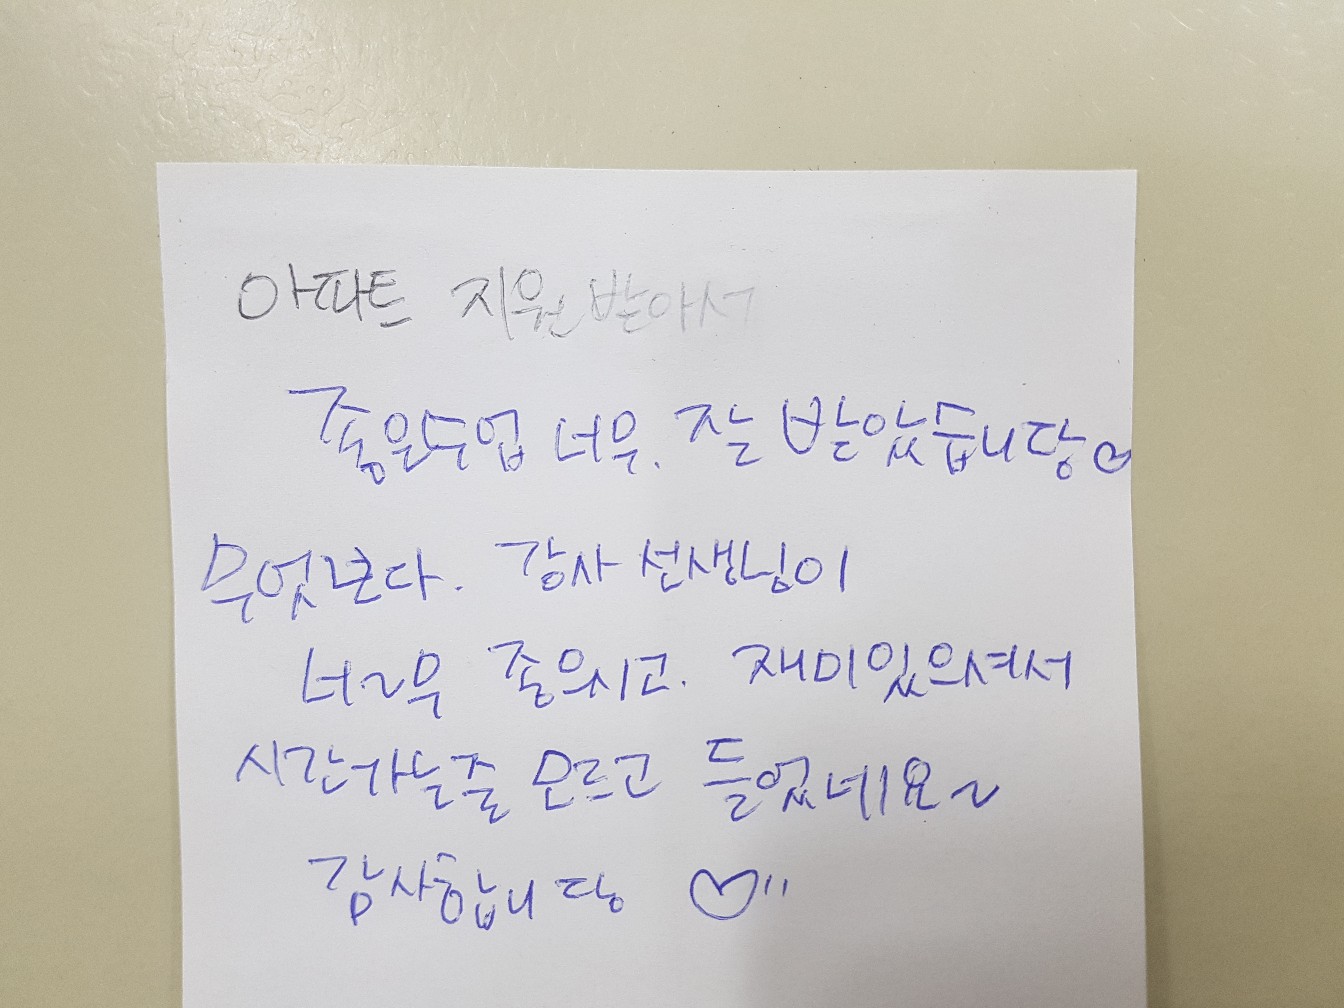 아파트 지원 받아서
좋은수업 너무. 잘 받았습니당♡
무엇보다. 강사 선생님이
너~무 좋으시고. 재미있으셔서
시간가는줄 모르고 들었네요~
감사합니당 ♡"